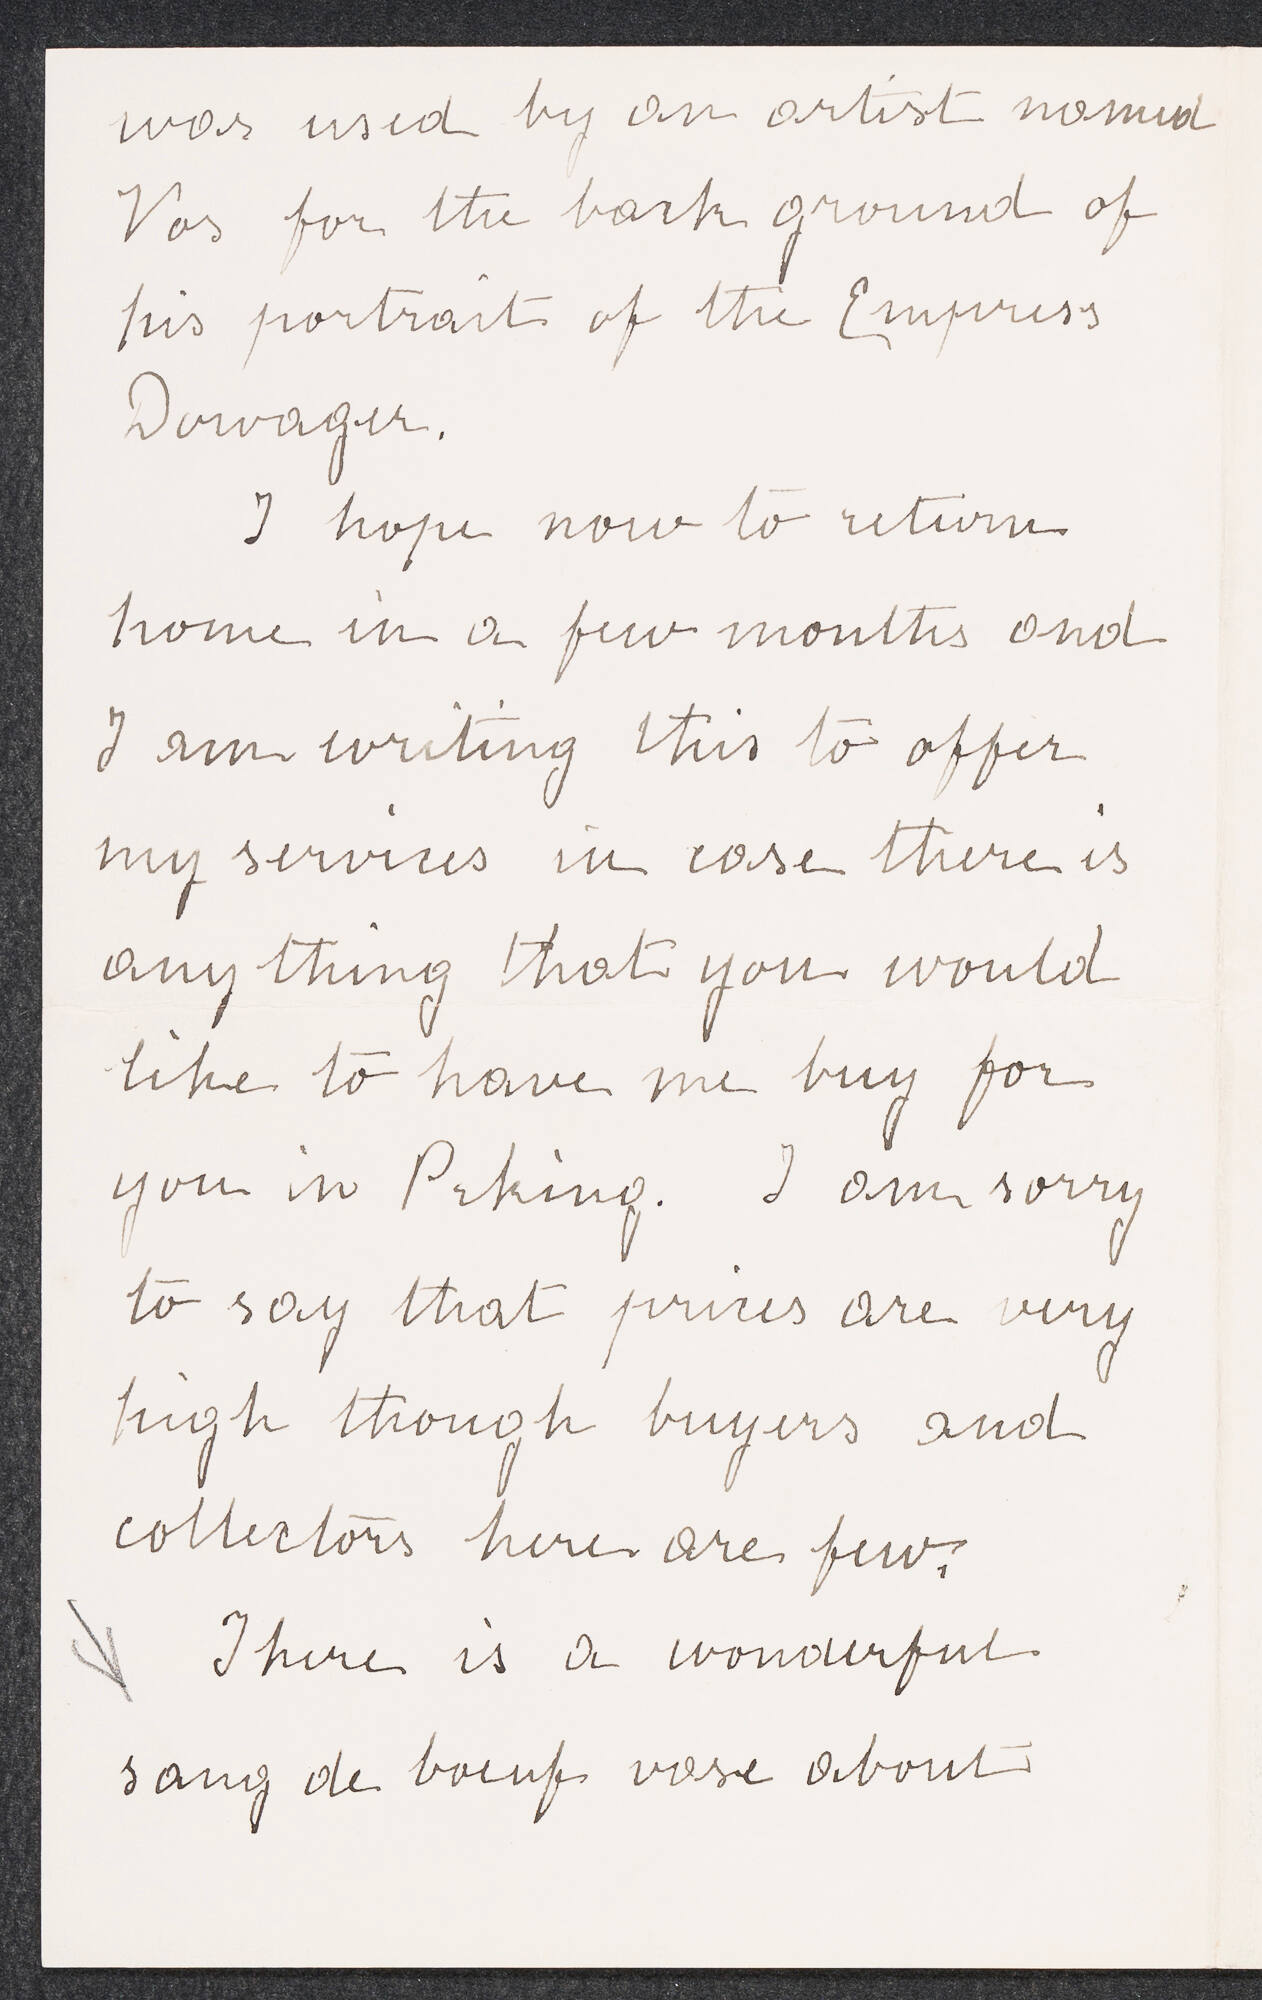 was used by an artist named
Vos for the back ground of
his portrait of the Empress
Dowager.
I hope now to return
home in a few months and
I am writing this to offer
my services in case there is
any thing that you would
like to have me buy for
you in Peking. I am sorry
to say that prices are very
high though buyers and
collectors here are few.
There is a wonderful
sang de boeuf vase about